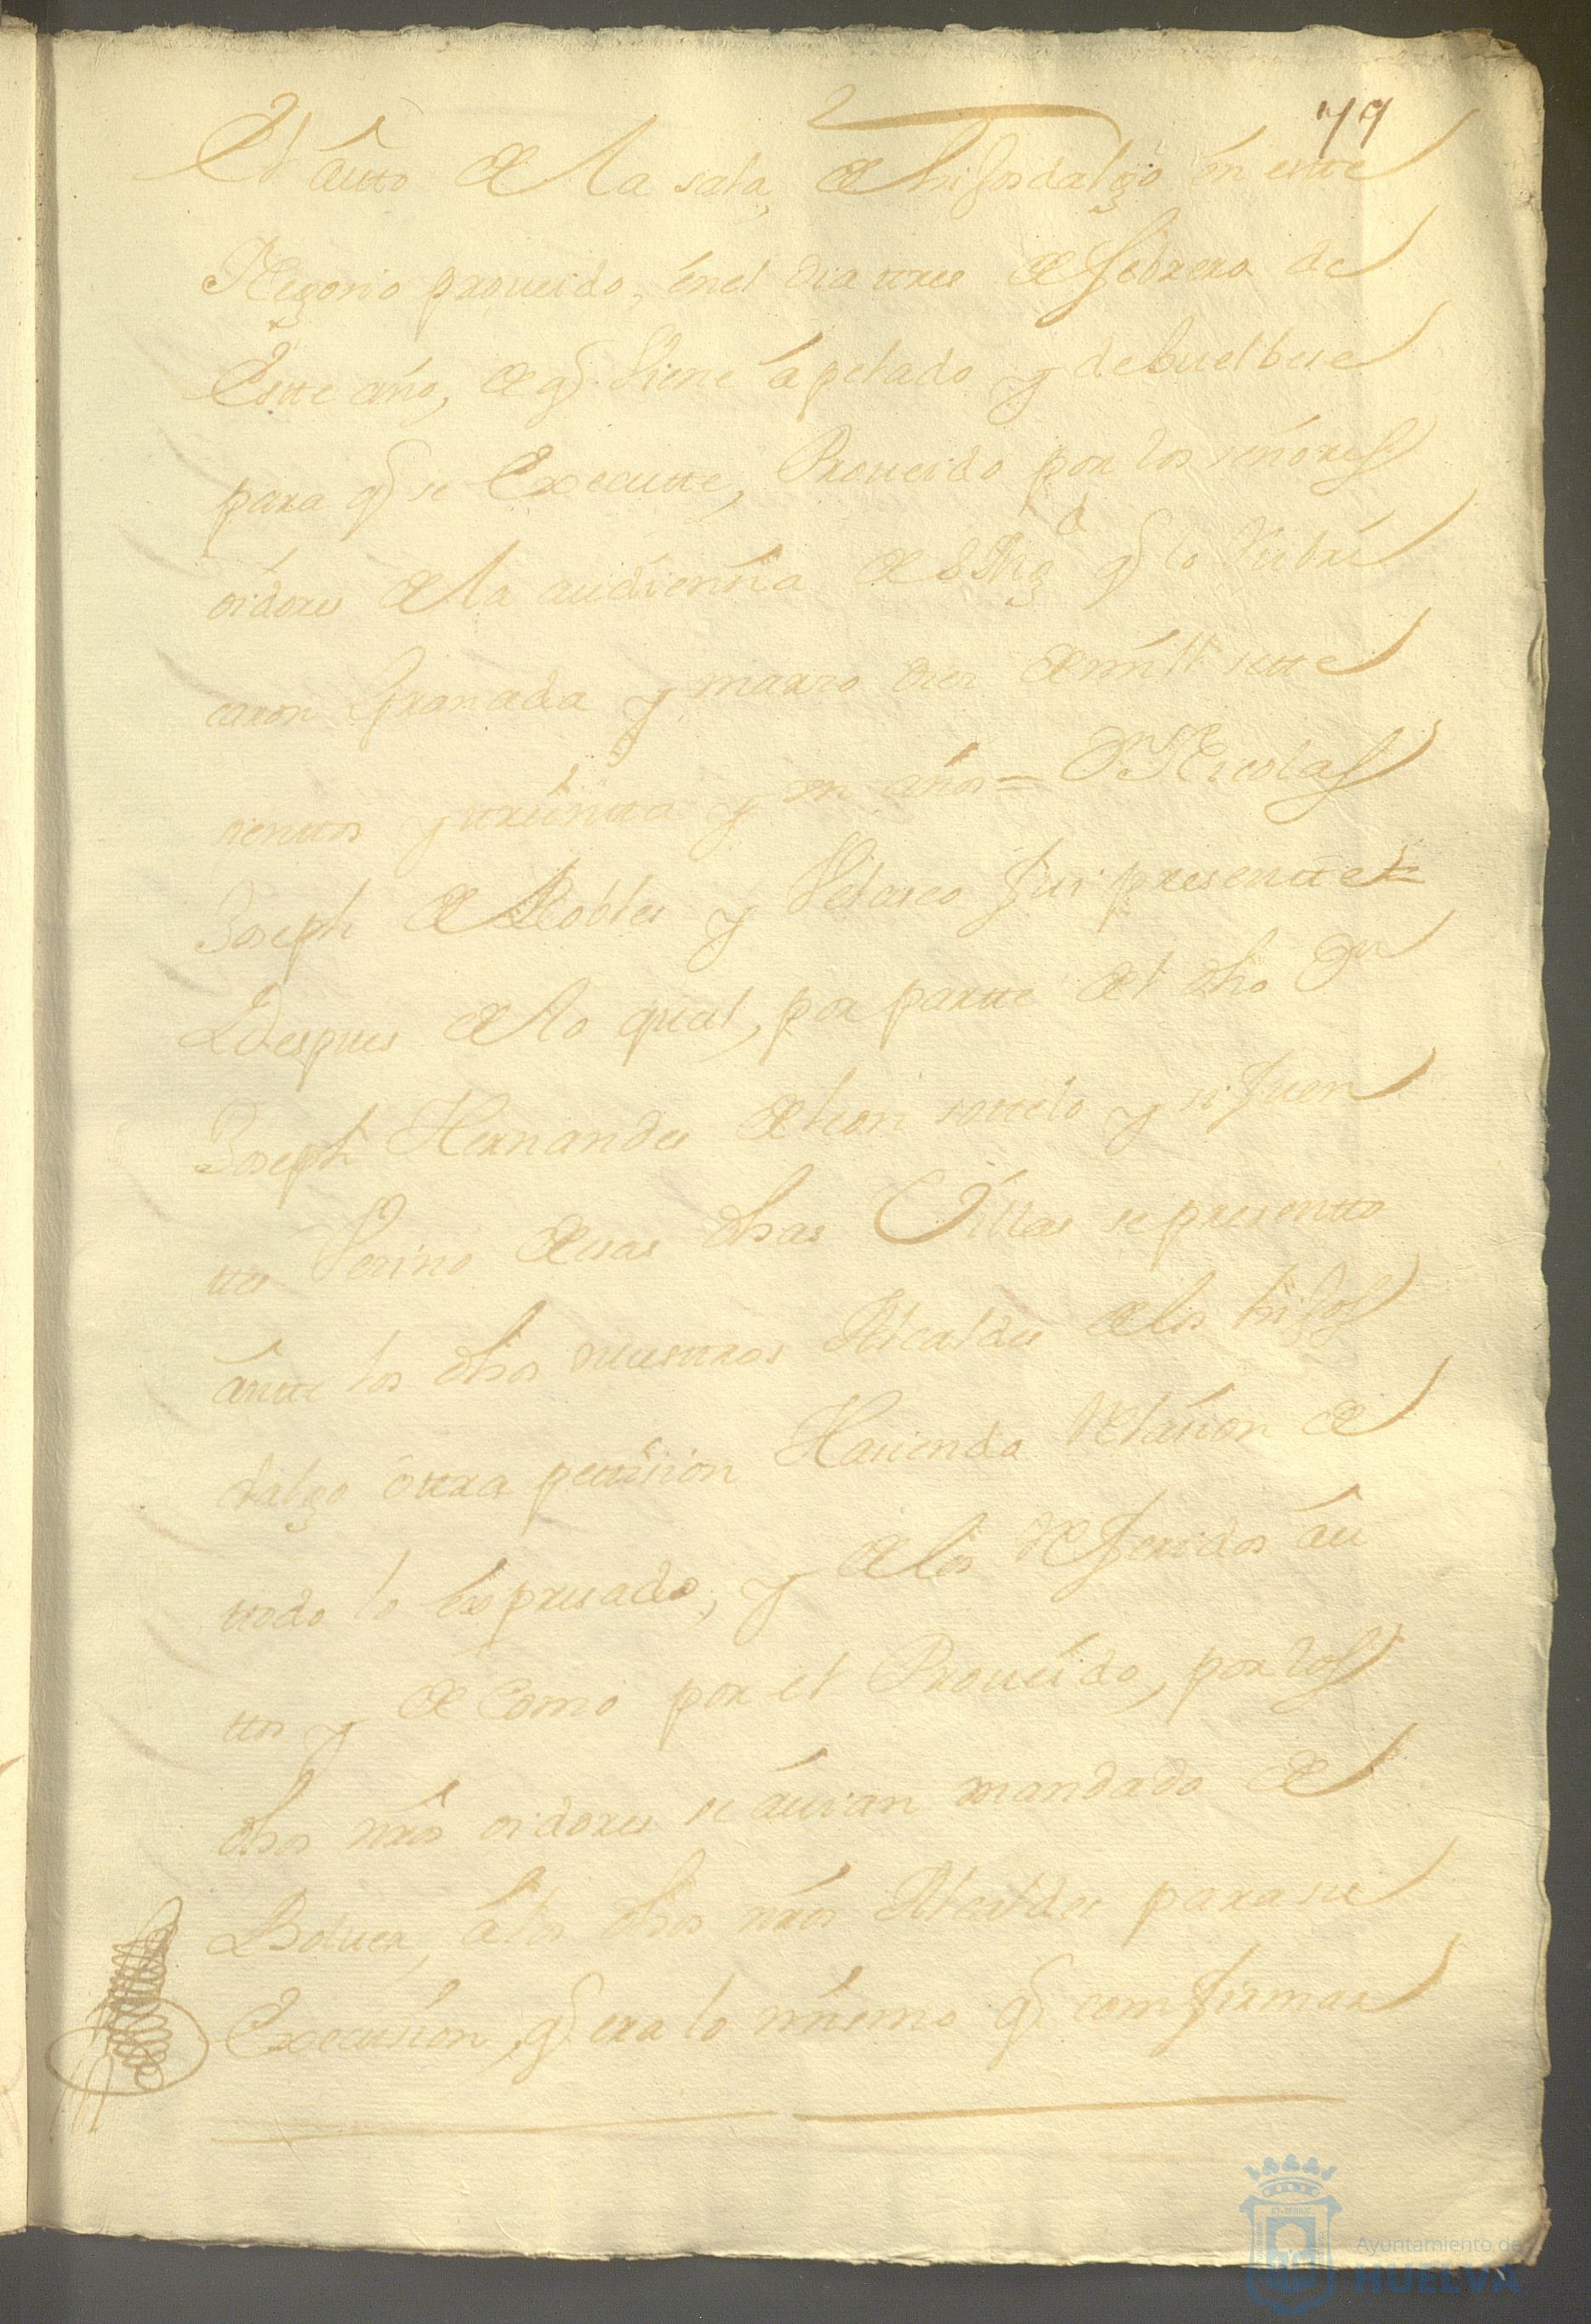 79
El auto de la sala de hijosdalgo en este
Negosio proueido, en el dia tres de febrero de
Este año, de q viene apelado y debuelbese
para q se Executte, Proueido por los señores
oidores de la audiensia de S Mg.d q lo Rubri
caron Granada y marzo diez de mill sette
sienttos y treintta y un años = Dn Nicolas
Joseph de Robles y Velasco fui presentte =
Y Despues de lo qual, por partte del dho Dn
Joseph Hernandes de leon sottelo y sifuen
ttes Vesino de esas dhas Villas se presentto
antte los dhos nuestros Alcaldes de los hijos
dalgo ottra petission Hasiendo Relasion de
ttodo lo expresado, y de los Referidos au
ttos y de como por el Proueido, por los
dhos nros oidores se auian mandado de
Boluer a los dhos nros Alcaldes para su
Execusion, q era lo mismo q comfirmar
Ayuntamiento de
HUELVA